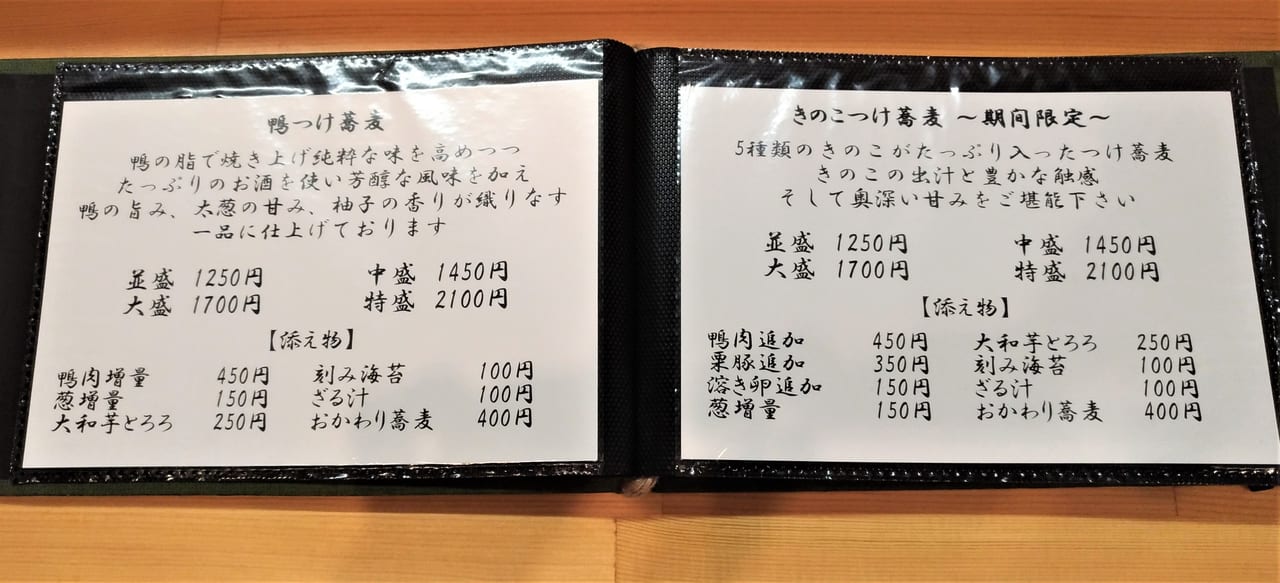 鴨つけ蕎麦
鴨の脂で焼き上げ純粋な味を高めつつ
たっぷりのお酒を使い芳醇な風味を加え
鴨の旨み、太葱の甘み、柚子の香りが織りなす
一品に仕上げております
並盛 1250円 中盛 1450円
大盛 1700円 特盛 2100円
【添え物】
鴨肉増量 450円 刻み海苔 100円
葱増量 150円 ざる汁 100円
大和芋とろろ 250円 おかわり蕎麦 400円
きのこつけ蕎麦 ～期間限定～
5種類のきのこがたっぷり入ったつけ蕎麦
きのこの出汁と豊かな触感
そして奥深い甘みをご堪能下さい
並盛 1250円 中盛 1450円
大盛 1700円 特盛 2100円
【添え物】
鴨肉追加 450円 大和芋とろろ 250円
栗豚追加 350円 刻み海苔 100円
溶き卵追加 150円 ざる汁 100円
葱増量 150円 おかわり蕎麦 400円